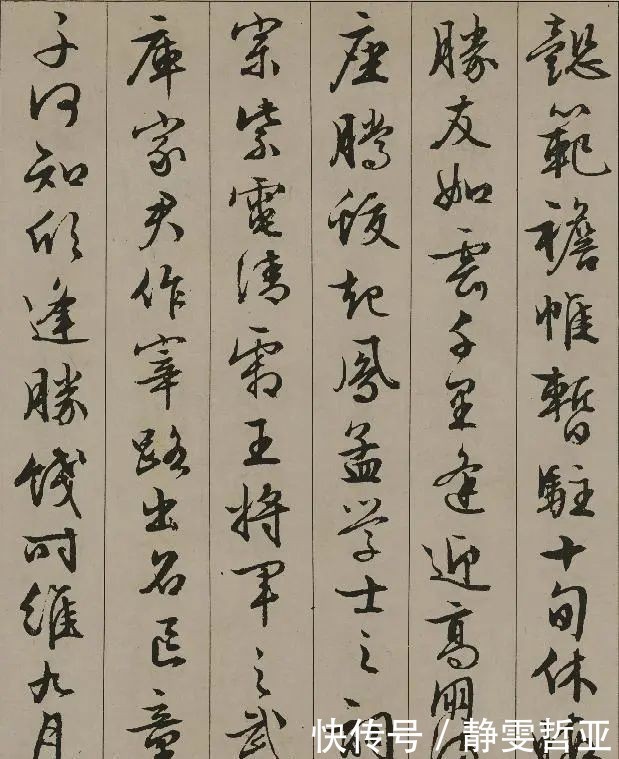 懿範襜帷暫駐十旬休暇
勝友如雲千里逢迎高朋滿
座騰蛟起鳳孟学士之詞
宗紫電清霜王將軍之武
庫家君作宰路出名區童
子何知躬逢勝餞时維九月
快传号 / 静雯哲亚